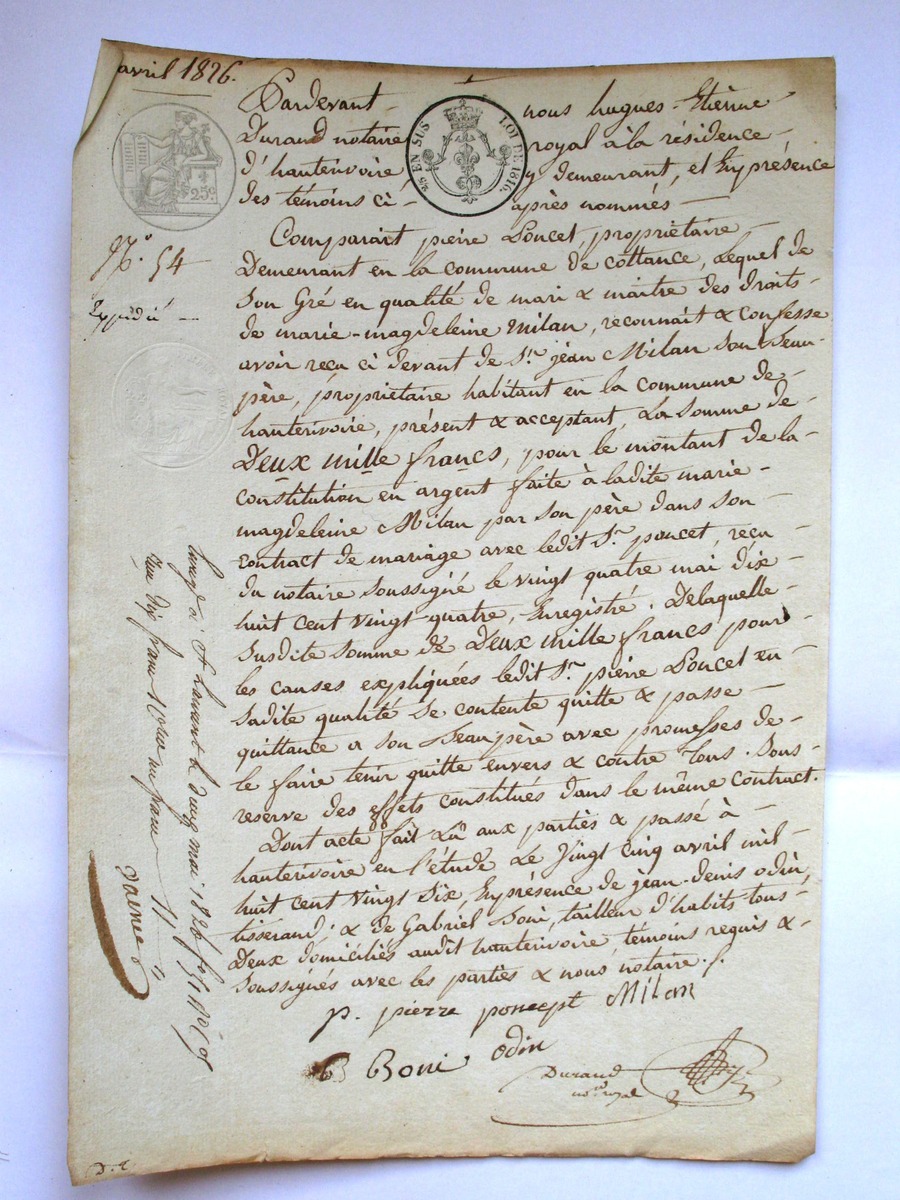 avril 1826.
Pardevant nous hugues-Etienne
Durand notaire royal à la résidence
d'hauterivoire y demeurant, et En présence
des témoins ci- après nommés
25 EN SUS LOI DE 1816.
25c.
No. 54
Expédié
Comparait pierre Poncet, propriétaire
Demeurant en la commune de cottance, Lequel de
son Gré en qualité de mari & maitre des droits
de marie-magdeleine Milan, reconnait & confesse
avoir reçu ci devant de Sr. jean Milan son Beau-
père, propriétaire habitant en la commune de
hauterivoire, présent & acceptant, La somme de
Deux mille francs, pour le montant de la
constitution en argent faite à ladite marie-
magdeleine Milan par son père dans son
contract de mariage avec ledit Sr. poncet, reçu
du notaire soussigné le vingt quatre mai dix
huit cent vingt-quatre, Enregistré. Delaquelle
susdite somme de Deux mille francs pour
les causes expliquées ledit Sr. pierre Poncet en
sadite qualité se contente quitte & passe
quittance a son Beaupère avec promesses de
le faire tenir quitte envers & contre Tous. Sous
reserve des effets constitués dans le même contract.
Dont acte fait Lû aux parties & passé à
hauterivoire en l'étude Le Vingt Cinq avril mil
huit cent vingt six, En présence de jean-denis odin,
tisserand, & de Gabriel Boni, tailleur d'habits tous
Deux domiciliés audit hauterivoire témoins requis &
soussignés avec les parties & nous notaire.
p. pierre poncept Milan
B Boni odin
Durand
nore royal
mai 1826
dix francs